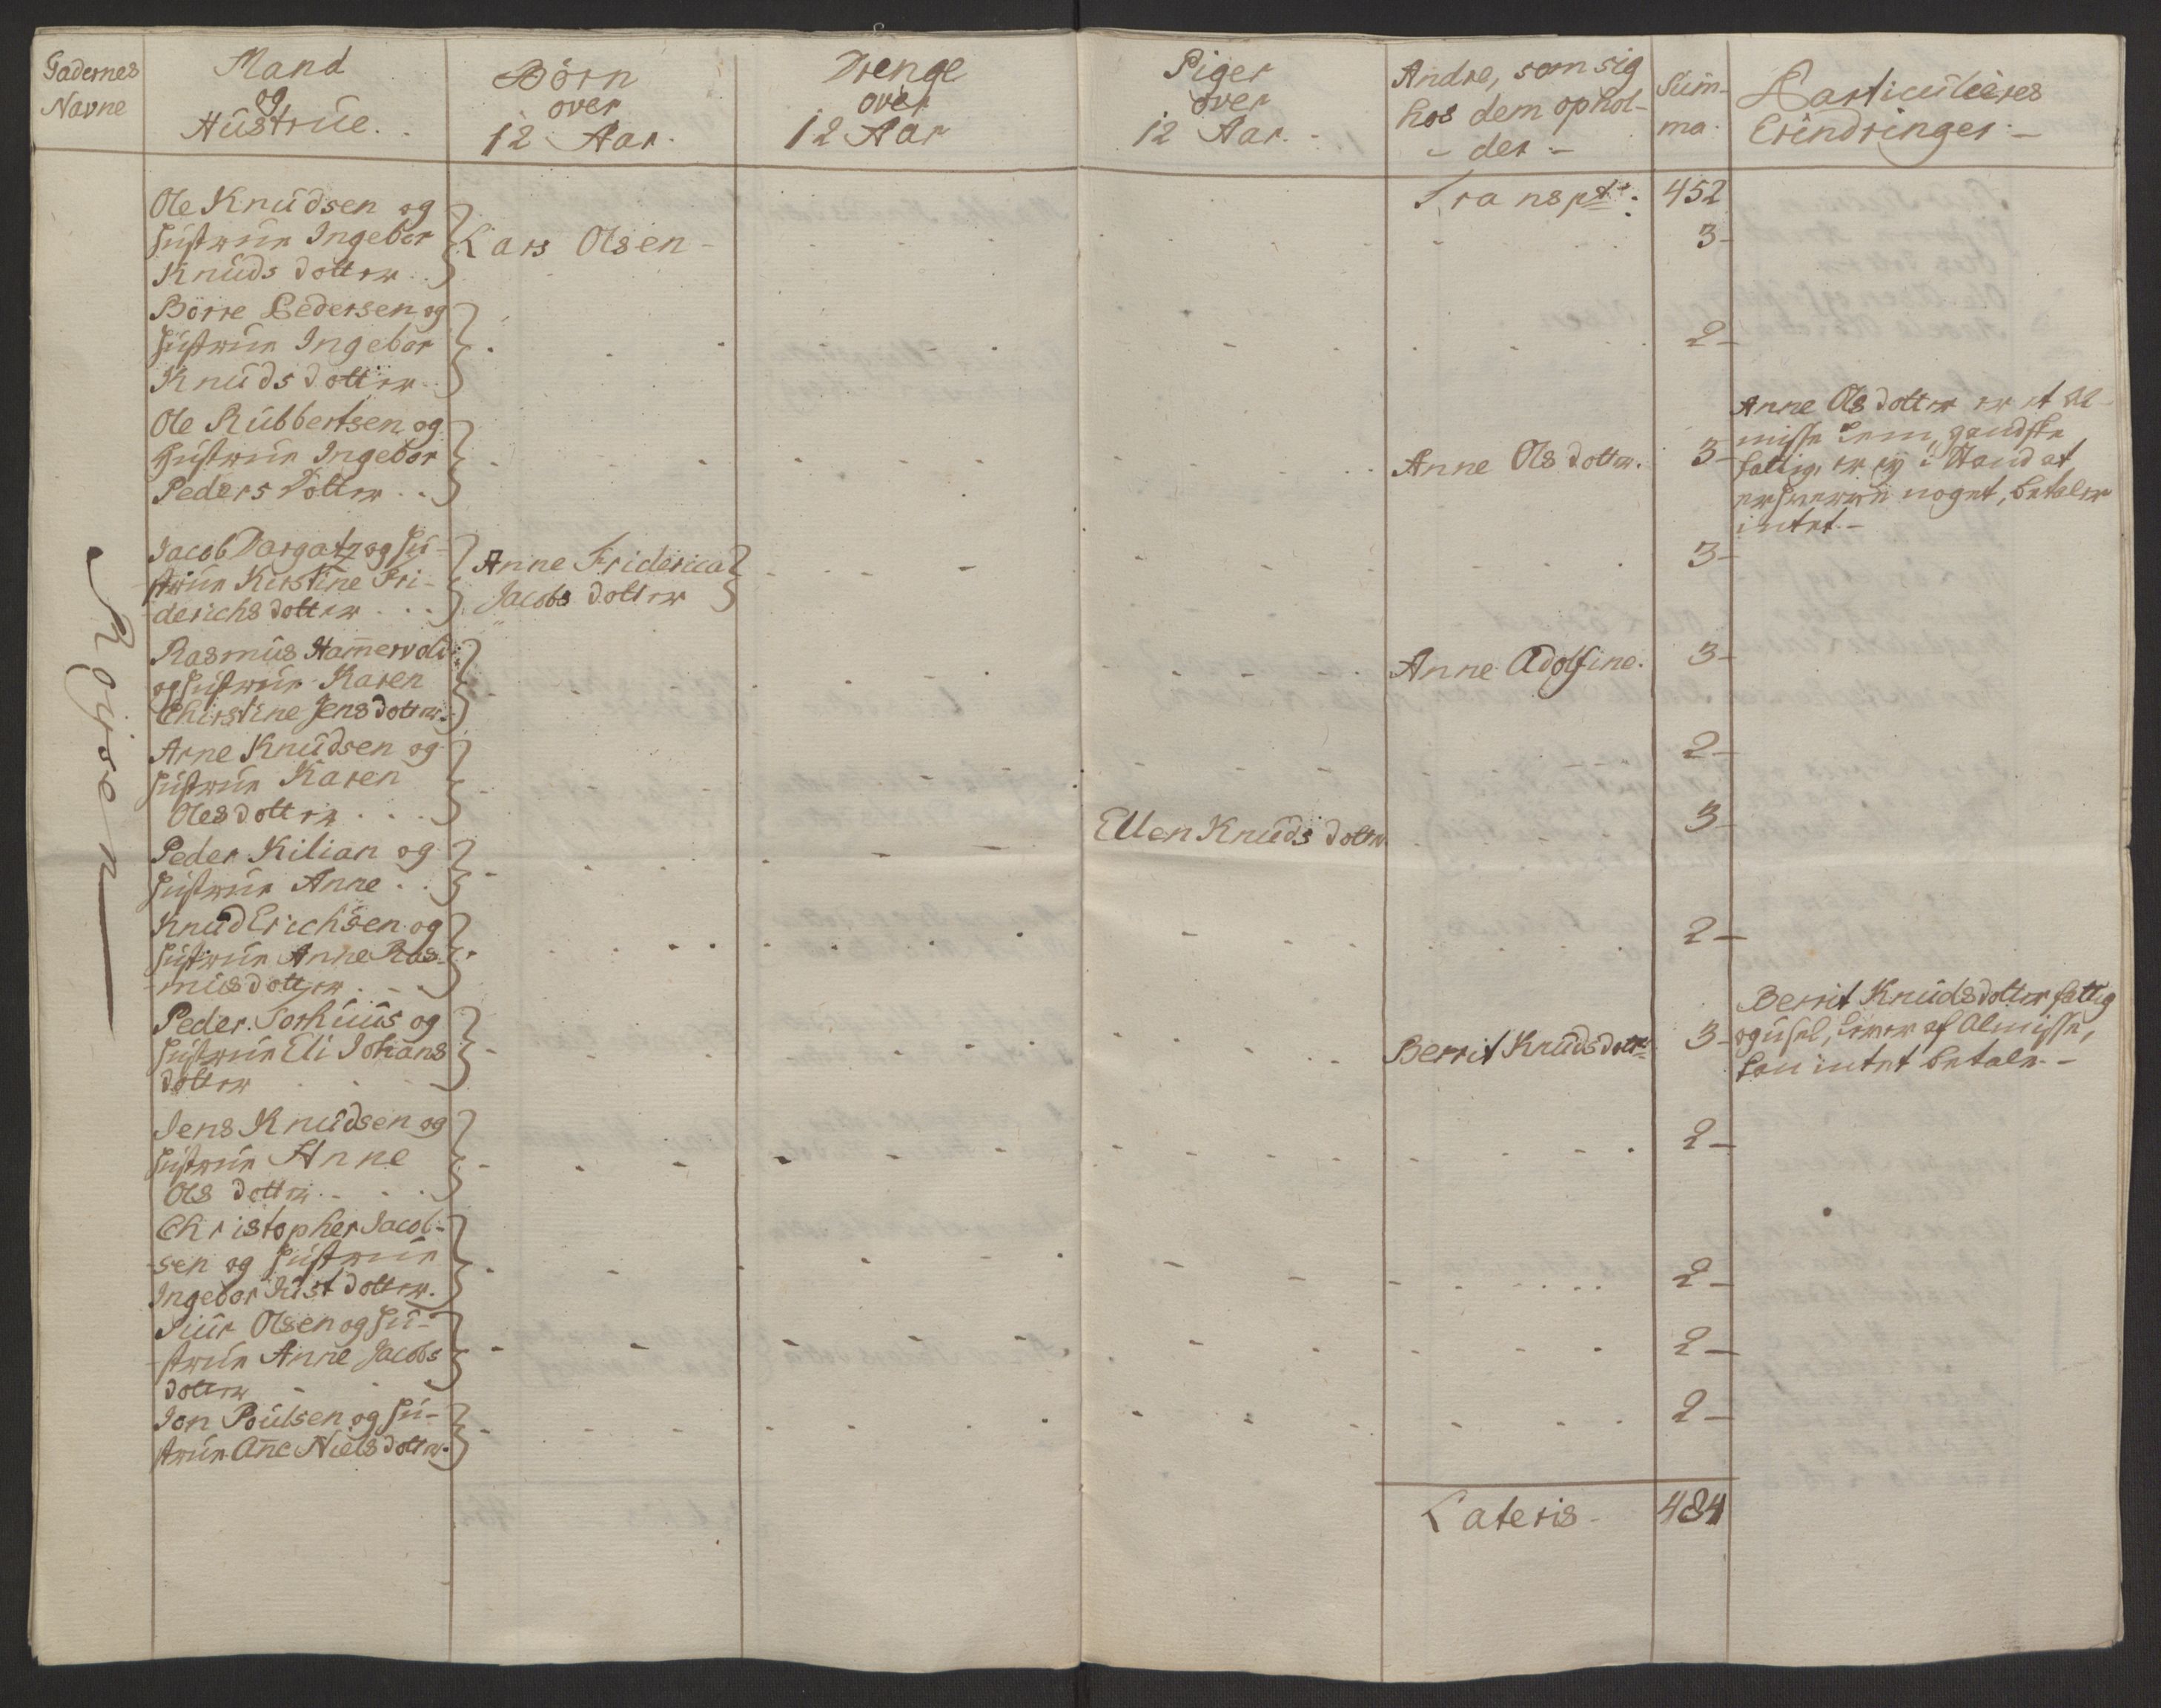 Gadernes
Navne
Mand
og
Hustrue.
Börn
over
12 Aar.
Drenge
over
12 Aar
Piger
over
12 Aar.
Andre, som sig
hos dem ophol-
- der -
Sum-
ma.
Particulieres
Erindringer -
Transpt: 452
Röysen
Ole Knudsen og
hustrue Ingebor
Knuds dotter
Lars Olsen - 3-
Börre Pedersen og
hustrue Ingebor
Knuds dotter
2-
Ole Rubbertsen og
hustrue Ingebor
Peders dotter
Anne Ols dotter. 3-
Anne Ols dotter er et Al-
misse Lem, gandske
fattig, er ej i Stand at
erhverve noget, betaler
intet.-
Jacob Dargatz og hu-
strue Kirstine Fri-
derichs dotter
Anne Friderica
Jacobs dotter
3-
Rasmus Hamervold
og hustrue Karen
Chirstine Jens dotter.
Anne Adolfine. 3-
Arne Knudsen og
hustrue Karen
Oles dotter
2-
Peder Kilian og
hustrue Anne
Ellen Knuds dotter 3-
Knud Erichsen og
hustrue Anne Ras-
mus dotter
2-
Peder Torhuus og
hustrue Eli Johans
dotter
Berrit Knuds dotter 3-
Berrit Knuds dotter fattig
og usel, lever af Almisse,
kan intet betale.-
Jens Knudsen og
hustrue Anne
Ols dotter
2-
Christopher Jacob-
sen og hustrue
Ingebor Just dotter.
2-
Siur Olsen og hu-
strue Anne Jacobs
dotter
2-
Jon Poulsen og hu-
strue Ane Niels dotter.
2-
Lateris - 484